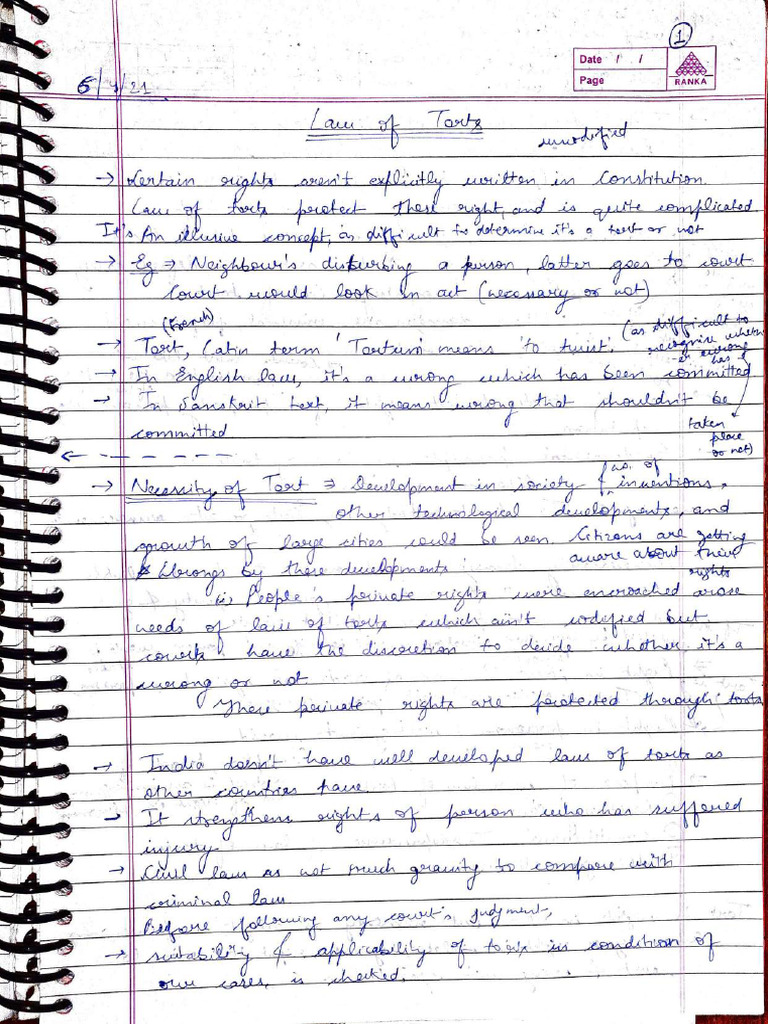 1
Date / /
Page
RANKA
5/4/21
Law of Torts
uncodified
→ Certain rights aren't explicitly written in Constitution.
Law of torts protect these right, and is quite complicated
It's An illusive concept, as difficult to determine it's a tort or not
→ Eg ⇒ Neighbour's disturbing a person, latter goes to court
Court would look in act (necessary or not)
(French)
→ Tort, Latin term 'Tortum' means 'to twist'. (as difficult to recognise whether a wrong has taken place or not)
→ In English law, it's a wrong which has been committed
→ In Sanskrit text, it means wrong that shouldn't be
committed
→ Necessity of Tort ⇒ Development in society & no. of inventions,
other technological developments, and
growth of large cities could be seen. Citizens are getting aware about their rights
Wrongs by these developments
(i) People's private rights were encroached arose
needs of law of torts which ain't codified but
courts have the discretion to decide whether it's a
wrong or not
These private rights are protected through torts
→ India doesn't have well developed law of torts as
other countries have.
→ It strengthens rights of person who has suffered
injury
→ Civil law as not much gravity to compare with
criminal law
Before following any court's judgment,
→ suitability & applicability of torts in condition of
our cases, is checked.